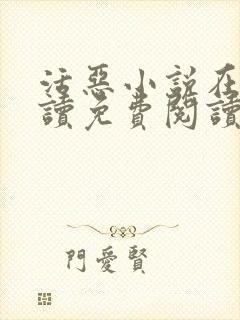 活惡小說在
讀免費閱讀
門愛賢